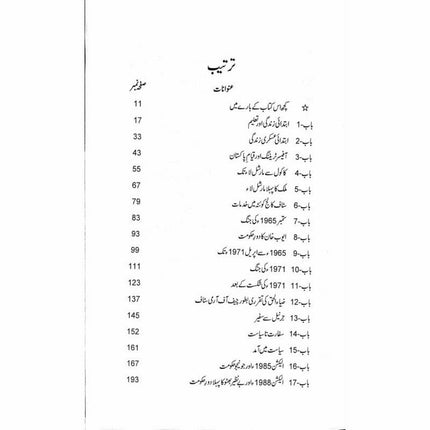 ترتیب
عنوانات صفحہ نمبر
☆ کچھ اس کتاب کے بارے میں 11
باب-1 ابتدائی زندگی اور تعلیم 17
باب-2 ابتدائی عسکری زندگی 33
باب-3 آفیسر ٹریننگ اور قیام پاکستان 43
باب-4 کاکول سے مارشل لاء تک 55
باب-5 ملک کا پہلا مارشل لاء 67
باب-6 سٹاف کالج کوئٹہ میں خدمات 79
باب-7 ستمبر 1965ء کی جنگ 83
باب-8 ایوب خان کا دور حکومت 93
باب-9 1965ء سے اپریل 1971ء تک 99
باب-10 1971ء کی جنگ 111
باب-11 1971ء کی شکست کے بعد 123
باب-12 ضیاء الحق کی تقرری بطور چیف آف آرمی سٹاف 137
باب-13 جرنیل سے سفیر 145
باب-14 سفارت تا سیاست 152
باب-15 سیاست میں آمد 161
باب-16 الیکشن 1985ء اور جونیجو حکومت 167
باب-17 الیکشن 1988ء اور بے نظیر بھٹو کا پہلا دور حکومت 193